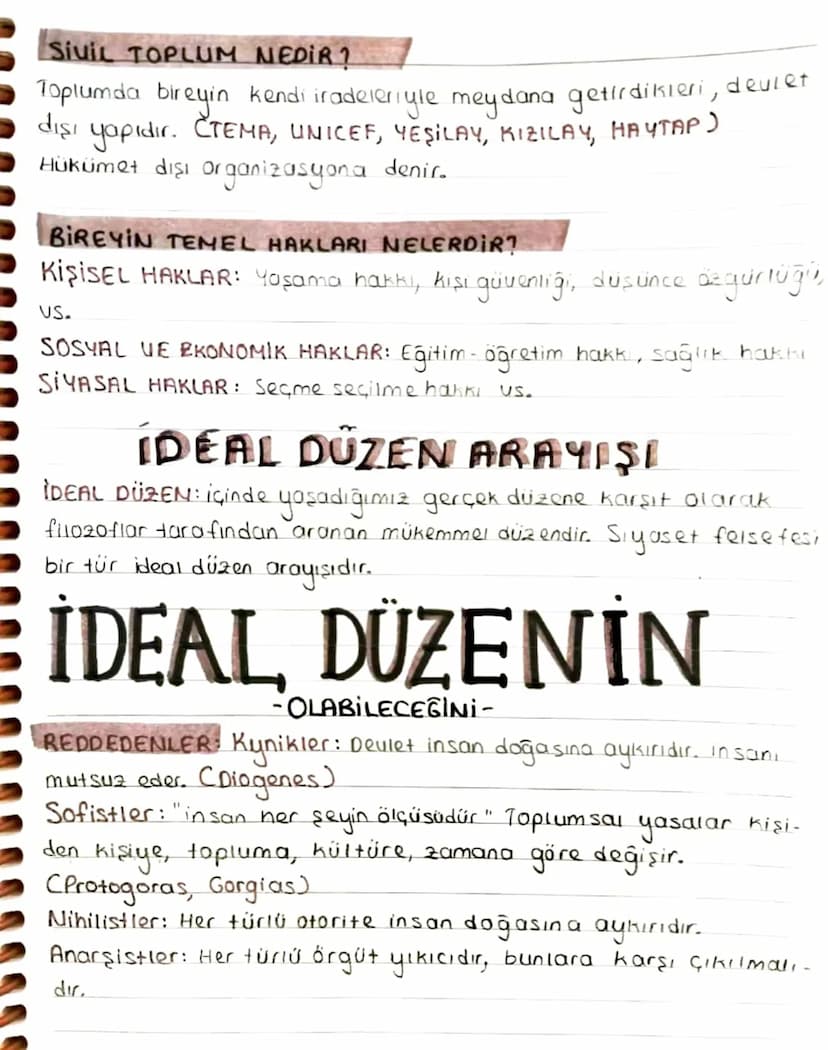 SİVİL TOPLUM NEDİR?
Toplumda bireyin kendi iradeleriyle meydana getirdikleri, devlet
dışı yapıdır. (TEMA, UNICEF, YEŞİLAY, KIZILAY, HAYTAP)
Hükümet dışı organizasyona denir.
BİREYİN TEMEL HAKLARI NELERDİR?
KİŞİSEL HAKLAR: Yaşama hakkı, kişi güvenliği, düşünce özgürlüğü,
vs.
SOSYAL VE EKONOMİK HAKLAR: Eğitim-öğretim hakkı, sağlık hakkı
SİYASAL HAKLAR: Seçme seçilme hakkı vs.
İDEAL DÜZEN ARAYIŞI
İDEAL DÜZEN: içinde yaşadığımız gerçek düzene karşıt olarak
filozoflar tarafından aranan mükemmel düzendir. Siyaset felsefesi
bir tür ideal düzen arayışıdır.
İDEAL DÜZENİN
-OLABİLECEĞİNİ-
REDDEDENLER: Kynikler: Devlet insan doğasına aykırıdır. insanı
mutsuz eder. (Diogenes)
Sofistler: "insan her şeyin ölçüsüdür" Toplumsal yasalar kişi-
den kişiye, topluma, kültüre, zamana göre değişir.
(Protogoras, Gorgias)
Nihilistler: Her türlü otorite insan doğasına aykırıdır.
Anarşistler: Her türlü örgüt yıkıcıdır, bunlara karşı çıkılmalı-
dır.